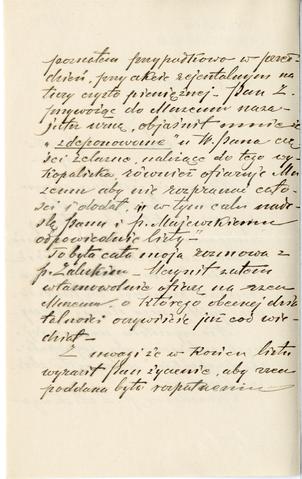 poznałem przypadkowo w przed
dzień, przy akcie rejentalnym na
tury czysto pieniężnej. Pan Z.
przywożąc do Muzeum naza
jutrz urnę, objaśnił mnie że
"zdeponowane" u W. Pana czę
ści żelazne, należące do tego wy
kopaliska, również ofiaruje Mu
zeum aby nie rozpraszać cało
ści i dodał, że "w tym celu nade
śle Panu i p. Majewskiemu
odpowiednie listy."
To była cała moja rozmowa z
p. Zaleskim. Uczynił zatem
ofiarę na rzecz
Muzeum, o którego obecnej dzia
łalności oczywiście już coś wie
dział.
Z uwagi że w końcu listu
wyraził Pan życzenie, aby rzecz
poddana była rozpatrzeniu